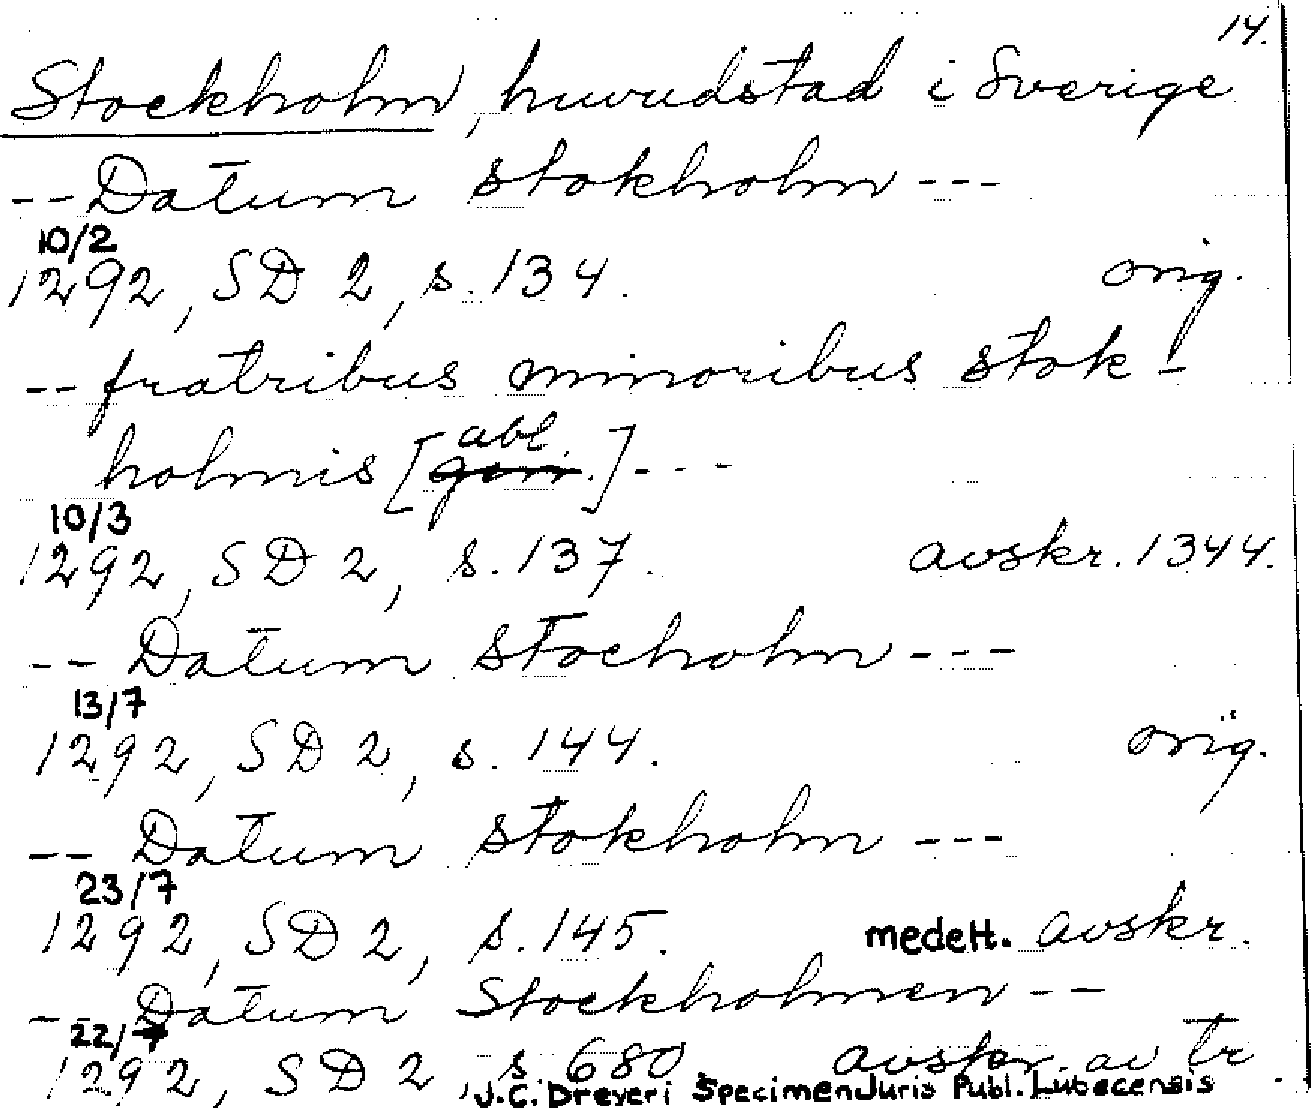 14.
Stockholm, huvudstad i Sverige
-- Datum stokholm ---
10/2
1292, SD 2, s. 134. orig.
-- fratribus minoribus stok-
abl.
holmis [gen.] ---
10/3
1292, SD 2, s. 137. avskr. 1344.
-- Datum stocholm ---
13/7
1292, SD 2, s. 144. orig.
-- Datum stokholm ---
23/7
1292, SD 2, s. 145. medelt. avskr.
-- Datum Stockholmen --
22/7
1292, SD 2, s. 680 avskr. av tr.
J.C. Dreyeri Specimen Juris Publ. Lubecensis